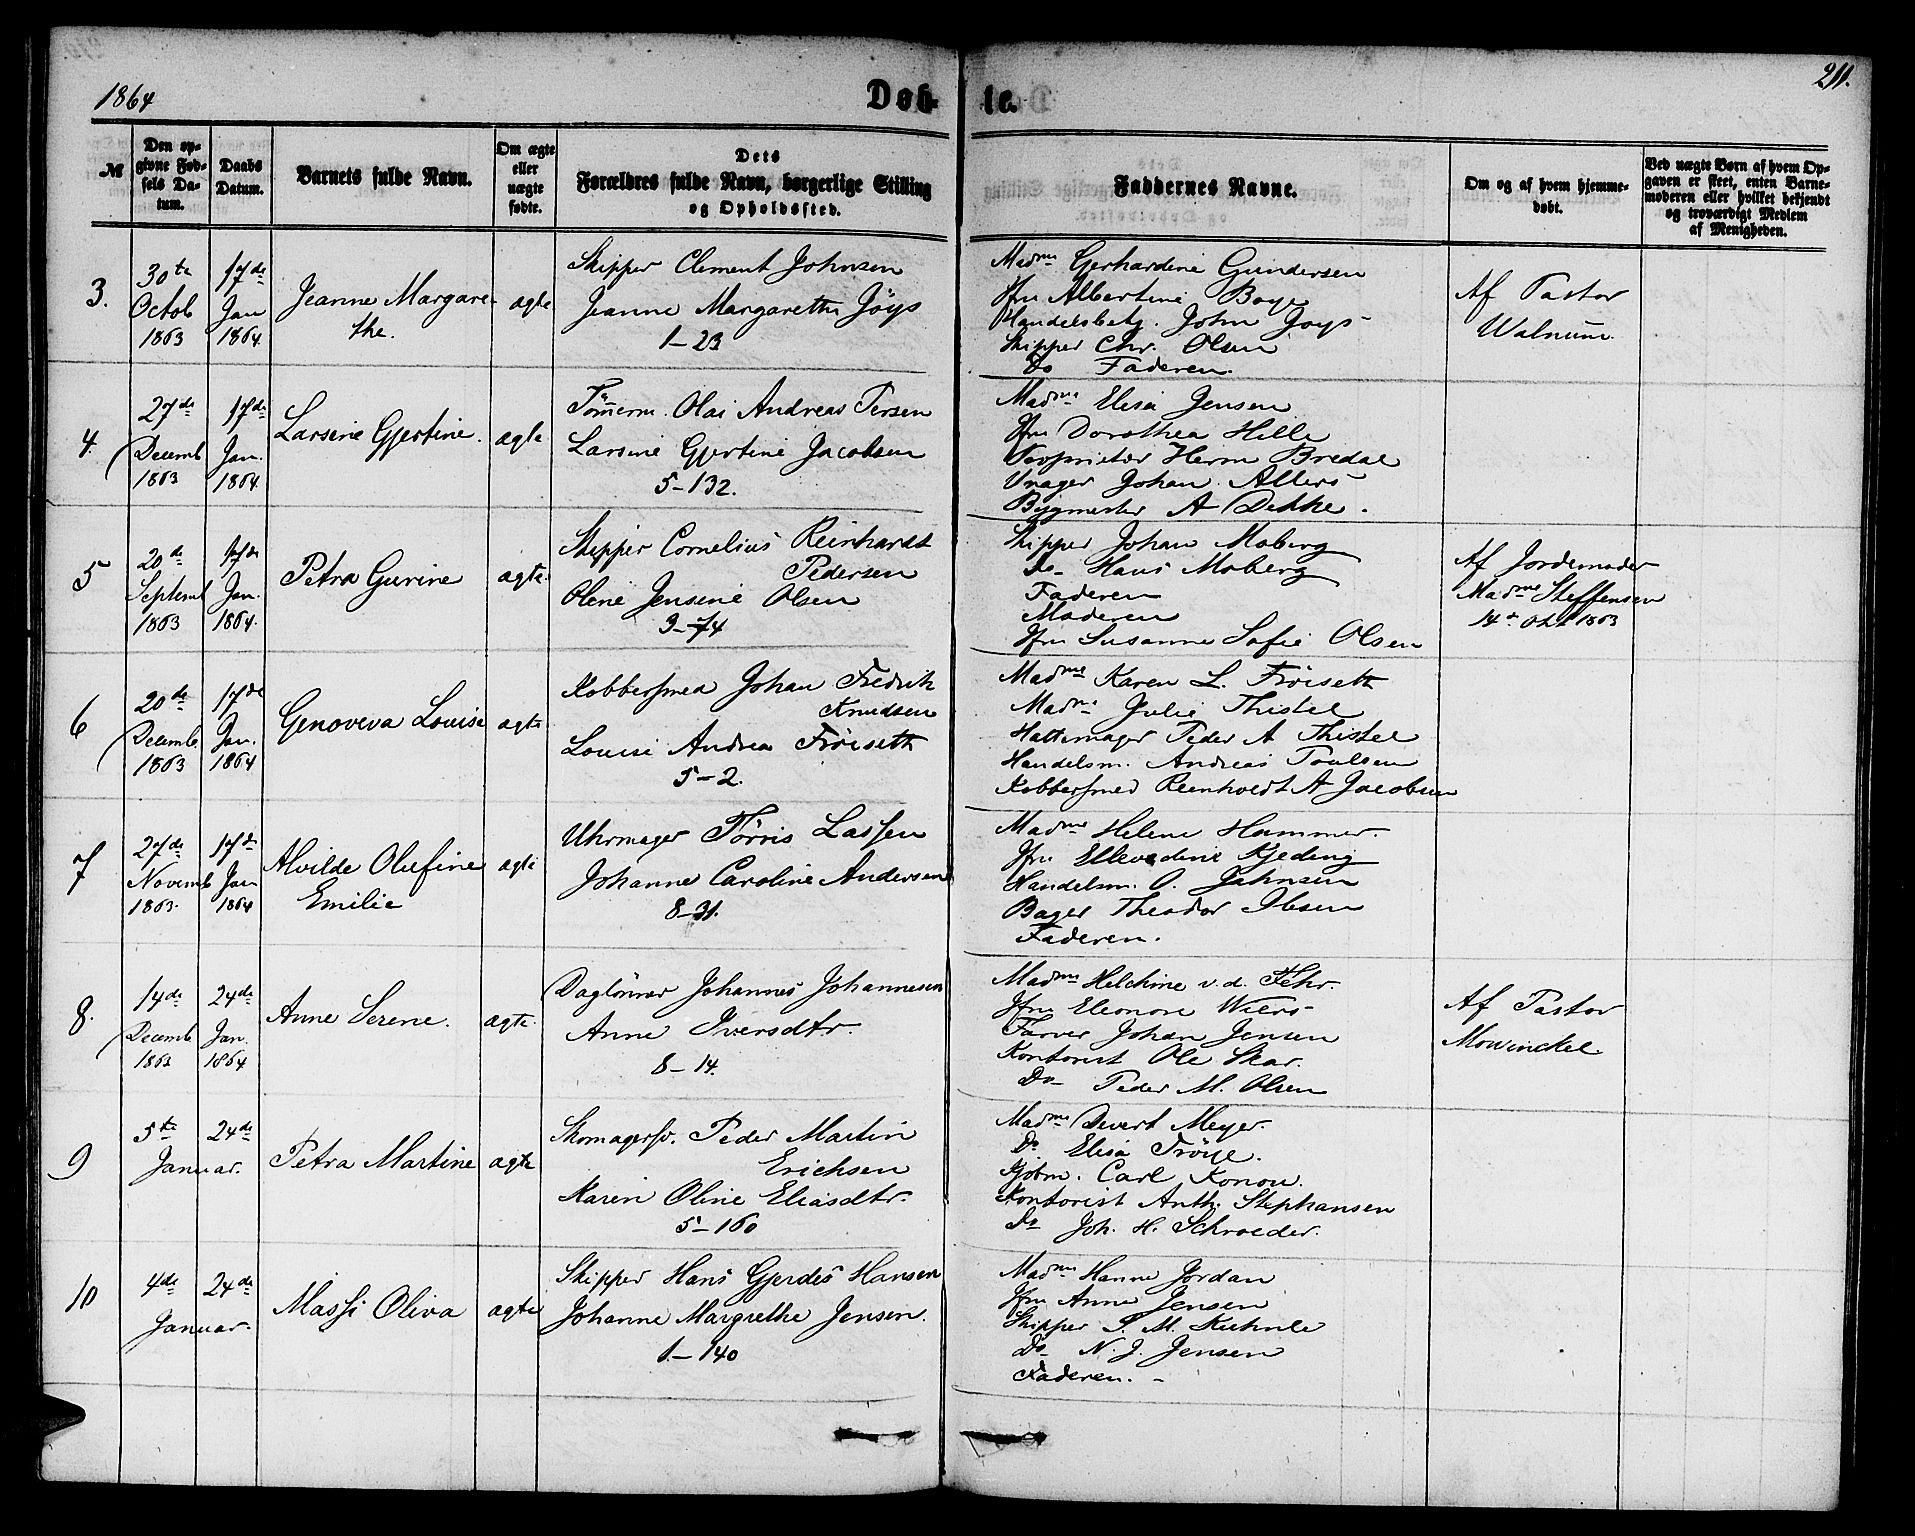 1864
Døb-
te.
211.
№
Den op-
givne Fød-
sels Da-
tum.
Daabs
Datum.
Barnets fulde Navn.
Om ægte
eller
uægte
fødte.
Dets
Forældres fulde Navn, borgerlige Stilling
og Opholdssted.
Faddernes Navne.
Om og af hvem hjemme-
døbt.
Ved uægte Børn af hvem Op-
gaven er skeet, enten Barne-
moderen eller hvilket bekjendt
og troværdigt Medlem
af Menigheden.
3.
30te
Octob
1863
17de
Jan
1864.
Jeanne Margare-
the.
ægte
Skipper Clement Johnsen
Jeanne Margarethe Jøys
1-23
Madme Gerhardine Gundersen
Jfru Albertine Boye
Handelsbetj. John Joys
Skipper Chr. Olsen
Do Faderen.
Af Pastor
Walnum.
4.
27de
Decemb
1863
17de
Jan.
1864.
Larsine Gjertine.
ægte
Tømerm. Olai Andreas Persen
Larsine Gjertine Jacobsen
5-132.
Madme Elisa Jensen
Jfru Dorothea Hille
Proprietær Herm Bredal
Urmager Johan Allers
Bygmester A Dekke.
5
20de
Septemb
1863
17de
Jan.
1864.
Petra Gurine
ægte.
Skipper Cornelius Reinhardt
Pedersen
Oline Jensine Olsen
3-74
Skipper Johan Moberg
Do Hans Moberg
Faderen
Moderen
Jfru Susanne Sofie Olsen
Af Jordemoder
Madme Steffensen
14de Okt 1863
6
20de
Decemb
1863
17de
Jan.
1864
Genoveva Louise
ægte
Kobbersmed Johan Fredrik
Knudsen
Louise Andrea Frøiseth
5-2.
Madme Karen L. Frøiseth
Madme Julie Thistel
Hattemager Peder A Thistel
Handelsm. Andreas Poulsen
Kobbersmed Reinholdt A Jacobsen
7
27de
Novemb
1863.
17de
Jan
1864
Alvilde Olufine
Emilie
ægte
Uhrmager Tørris Lassen
Johanne Caroline Andersen
8-31.
Madme Helene Hammer.
Jfru Ellevedine Kjeding
Handelsm. O. Jahnsen
Bager Theodor Ibsen
Faderen.
8.
14de
Decemb
1863
24de
Jan.
1864
Anne Serene.
ægte.
Dagløner Johannes Johannesen
Anne Iversdtr.
8-14.
Madme Helchine v.d. Fehr.
Jfru Eleonore Wiers
Farver Johan Jensen
Kontorist Ole Skar.
Do Peder M. Olsen
Af Pastor
Mowinckel.
9
5te
24de
Januar.
Petra Martine
ægte
Skomagersv. Peder Martin
Erichsen
Karen Oline Eliasdtr.
5-160
Madme Devert Meyer.
Do Elisa Frøye.
Kjøbm. Carl Konow.
Kontorist Anth. Stephansen
Do Joh. H. Schroeder.
10
4de
24de
Januar.
Massi Oliva
ægte
Skipper Hans Gjerdes Hansen
Johanne Margrethe Jensen.
1.-140
Madme Hanne Jordan
Jfru Anne Jensen
Skipper P. M. Kuhnle
Do N. J. Jensen
Faderen.